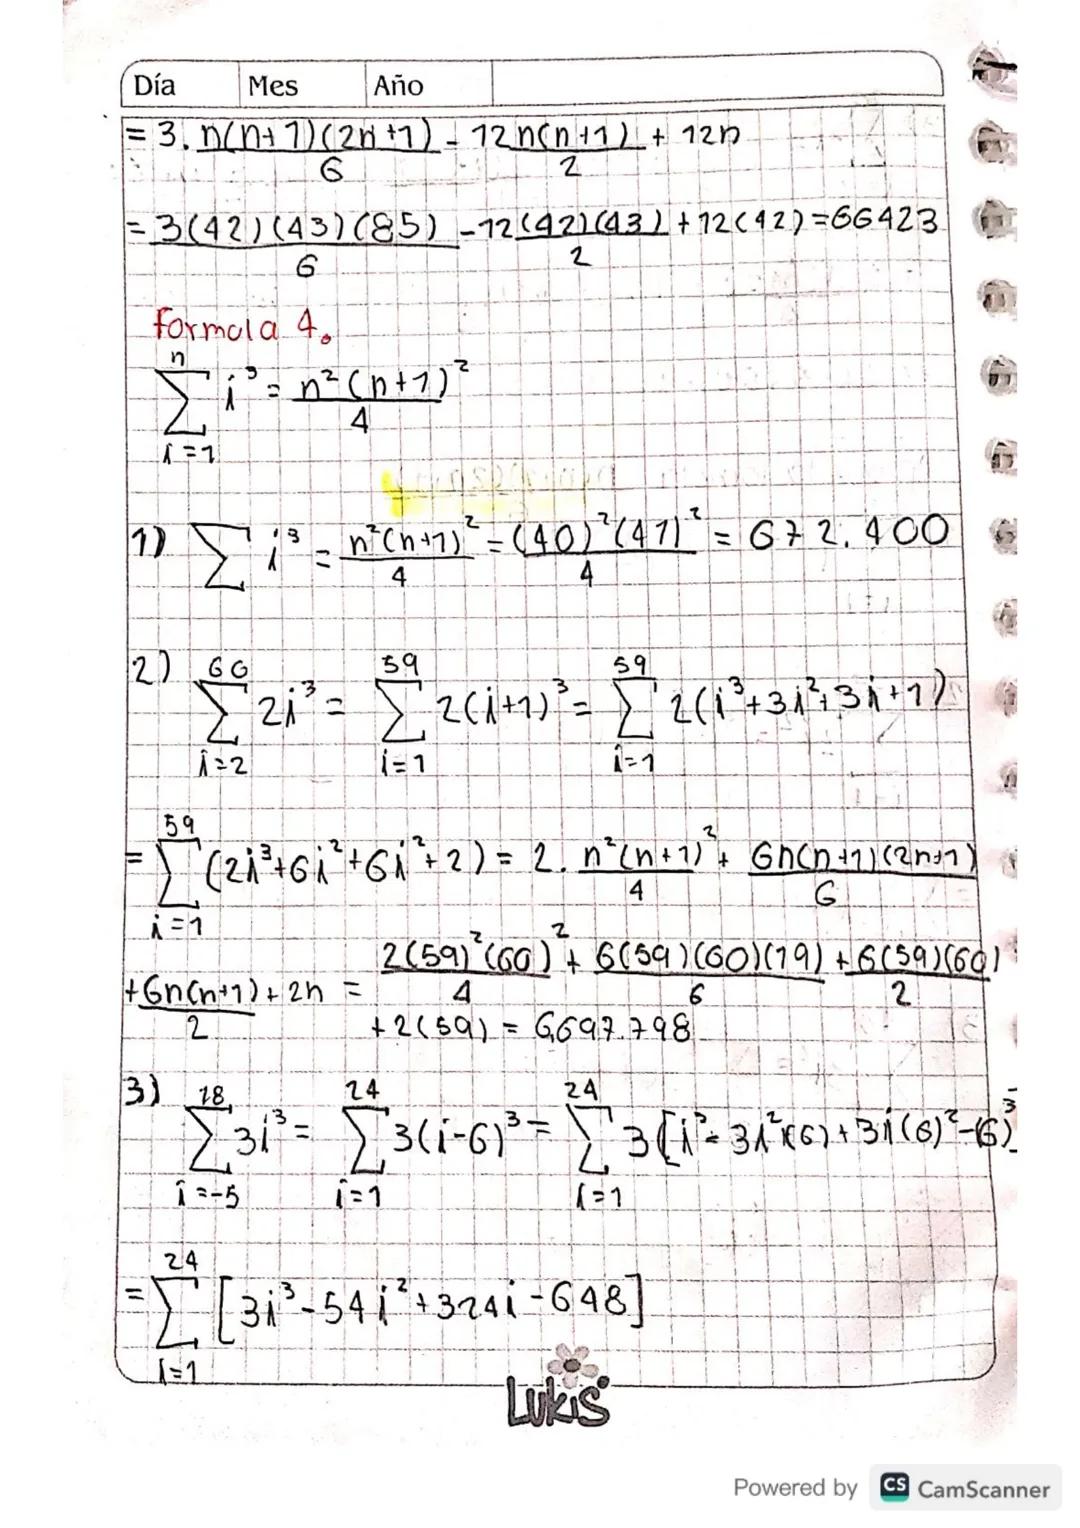 Día Mes Año
= 3. n(n+1)(2n+1)/6 - 12n(n+1)/2 + 12n
= 3(42)(43)(85)/6 - 12(42)(43)/2 + 12(42) = 66423
formula 4.
n∑i=1 i³ = n²(n+1)²/4
1) ∑ i³ = n²(n+1)²/4 = (40)²(41)²/4 = 672.400
2) 60∑i=2 2i³ = 59∑i=1 2(i+1)³ = 59∑i=1 2(i³+3i²+3i+1)
= 59∑i=1 (2i³+6i²+6i²+2) = 2. n²(n+1)²/4 + 6n(n+1)(2n+1)/6
+6n(n+1)/2 + 2n = 2(59)²(60)²/4 + 6(59)(60)(19)/6 + 6(59)(60)/2
+ 2(59) = 6,697.798
3) 18∑i=-5 3i³ = 24∑i=1 3(i-6)³ = 24∑i=1 3[i³- 3i²(6) + 3i(6)²-(6)³
= 24∑i=1 [3i³-54i²+324i-648]
LUKIS
Powered by CS CamScanner